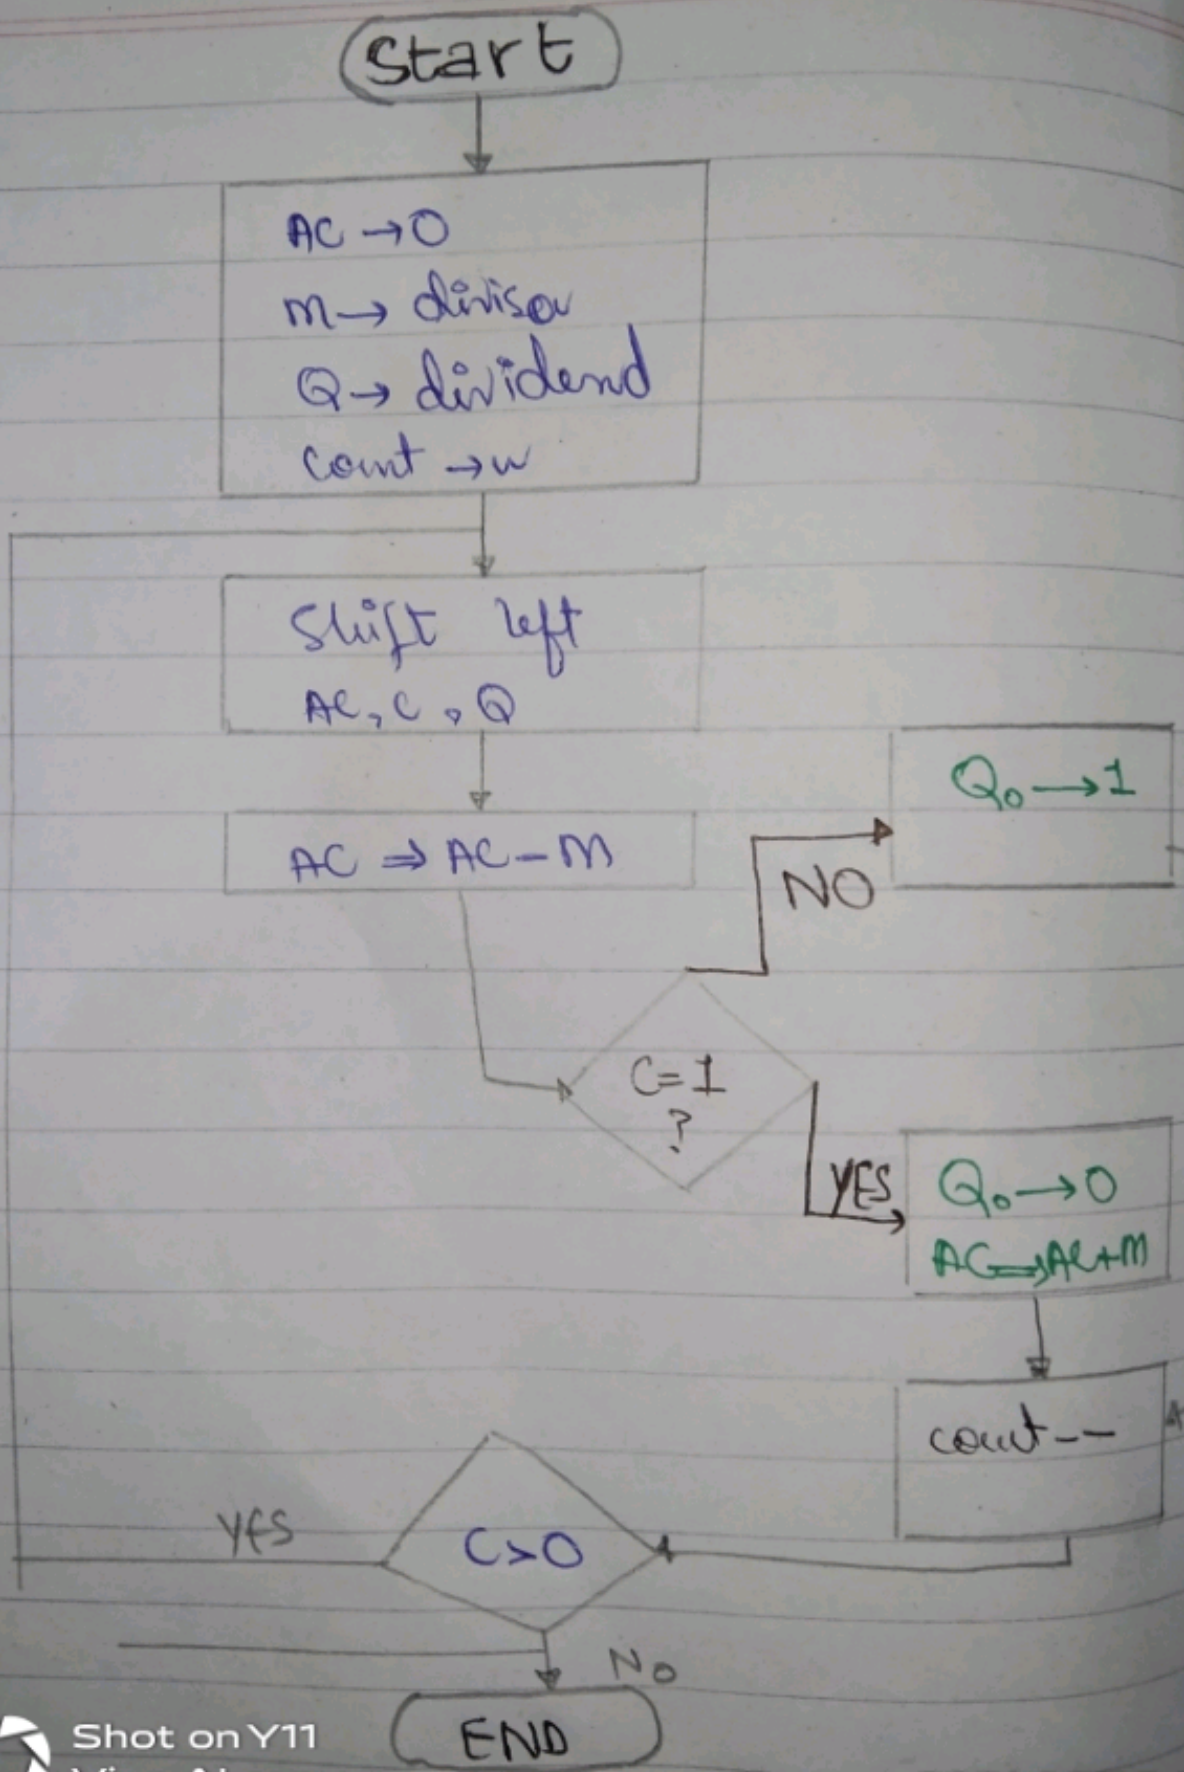 Start
AC → 0
M → divisor
Q → dividend
Count → n
Shift left
AC, C, Q
AC ⇒ AC - M
Q₀ → 1
NO
C = 1
?
YES
Q₀ → 0
AC ⇒ AC + M
count--
YES
C > 0
NO
END
Shot on Y11